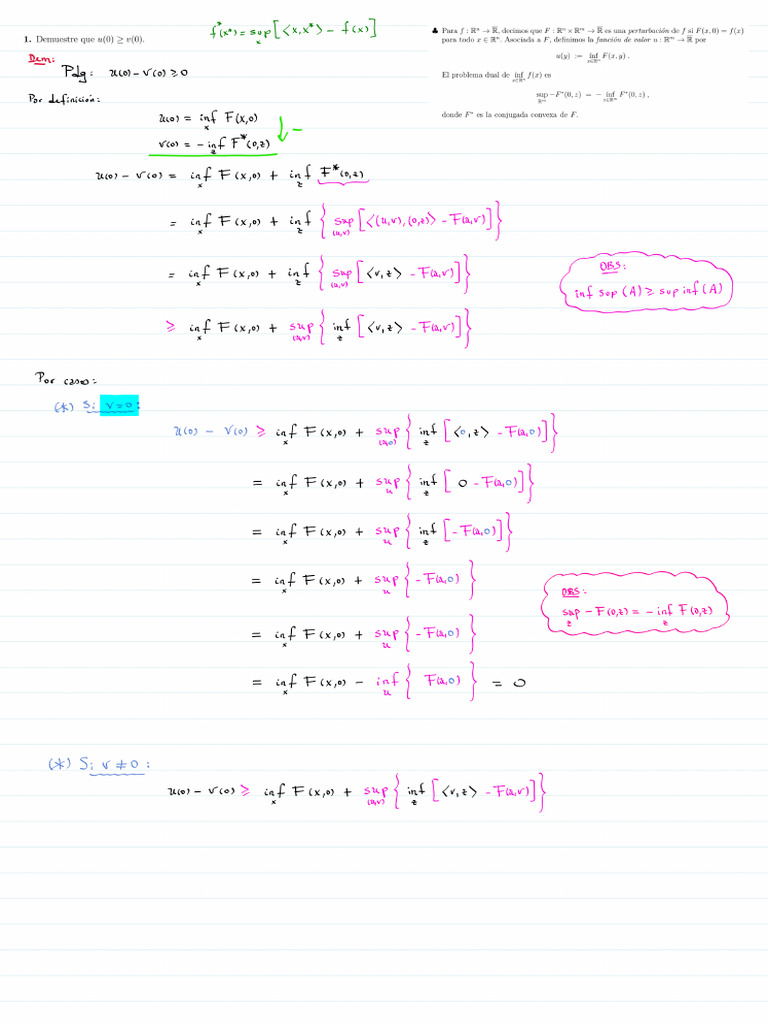 f*(x*) = sup_x [<x, x*> - f(x)]
1. Demuestre que u(0) ≥ v(0).
♣ Para f : ℝⁿ → ℝ̅, decimos que F : ℝⁿ × ℝᵐ → ℝ̅ es una perturbación de f si F(x, 0) = f(x)
para todo x ∈ ℝⁿ. Asociada a F, definimos la función de valor u : ℝᵐ → ℝ̅ por
u(y) := inf_{x∈ℝⁿ} F(x, y) .
El problema dual de inf_{x∈ℝⁿ} f(x) es
sup_{z∈ℝᵐ} −F*(0, z) = − inf_{z∈ℝᵐ} F*(0, z) ,
donde F* es la conjugada convexa de F.
Dem:
Pdg: u(0) - v(0) ≥ 0
Por definición:
u(0) = inf_x F(x,0)
v(0) = - inf_z F*(0,z)
↓ -
u(0) - v(0) = inf_x F(x,0) + inf_z F*(0,z)
= inf_x F(x,0) + inf_z { sup_(u,v) [<(u,v),(0,z)> - F(u,v)] }
= inf_x F(x,0) + inf_z { sup_(u,v) [<v,z> - F(u,v)] }
OBS:
inf sup (A) ≥ sup inf (A)
≥ inf_x F(x,0) + sup_(u,v) { inf_z [<v,z> - F(u,v)] }
Por casos:
(*) Si v=0:
u(0) - v(0) ≥ inf_x F(x,0) + sup_(u,0) { inf_z [<0,z> - F(u,0)] }
= inf_x F(x,0) + sup_u { inf_z [0 - F(u,0)] }
= inf_x F(x,0) + sup_u { inf_z [- F(u,0)] }
= inf_x F(x,0) + sup_u { - F(u,0) }
OBS:
sup_z - F(0,z) = - inf_z F(0,z)
= inf_x F(x,0) + sup_u { - F(u,0) }
= inf_x F(x,0) - inf_u { F(u,0) } = 0
(*) Si v ≠ 0:
u(0) - v(0) ≥ inf_x F(x,0) + sup_(u,v) { inf_z [<v,z> - F(u,v)] }